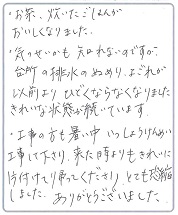 ・お茶、炊いたごはんが
おいしくなりました。
・気のせいかも知れないのですが、
台所の排水のぬめり、よごれが
以前より ひどくならなくなりました
きれいな状態が続いています。
・工事の方も暑い中 いっしょうけんめい
工事して下さり、来た時よりもきれいに
片付けて帰ってくださり とても恐縮
しました。ありがとうございました。